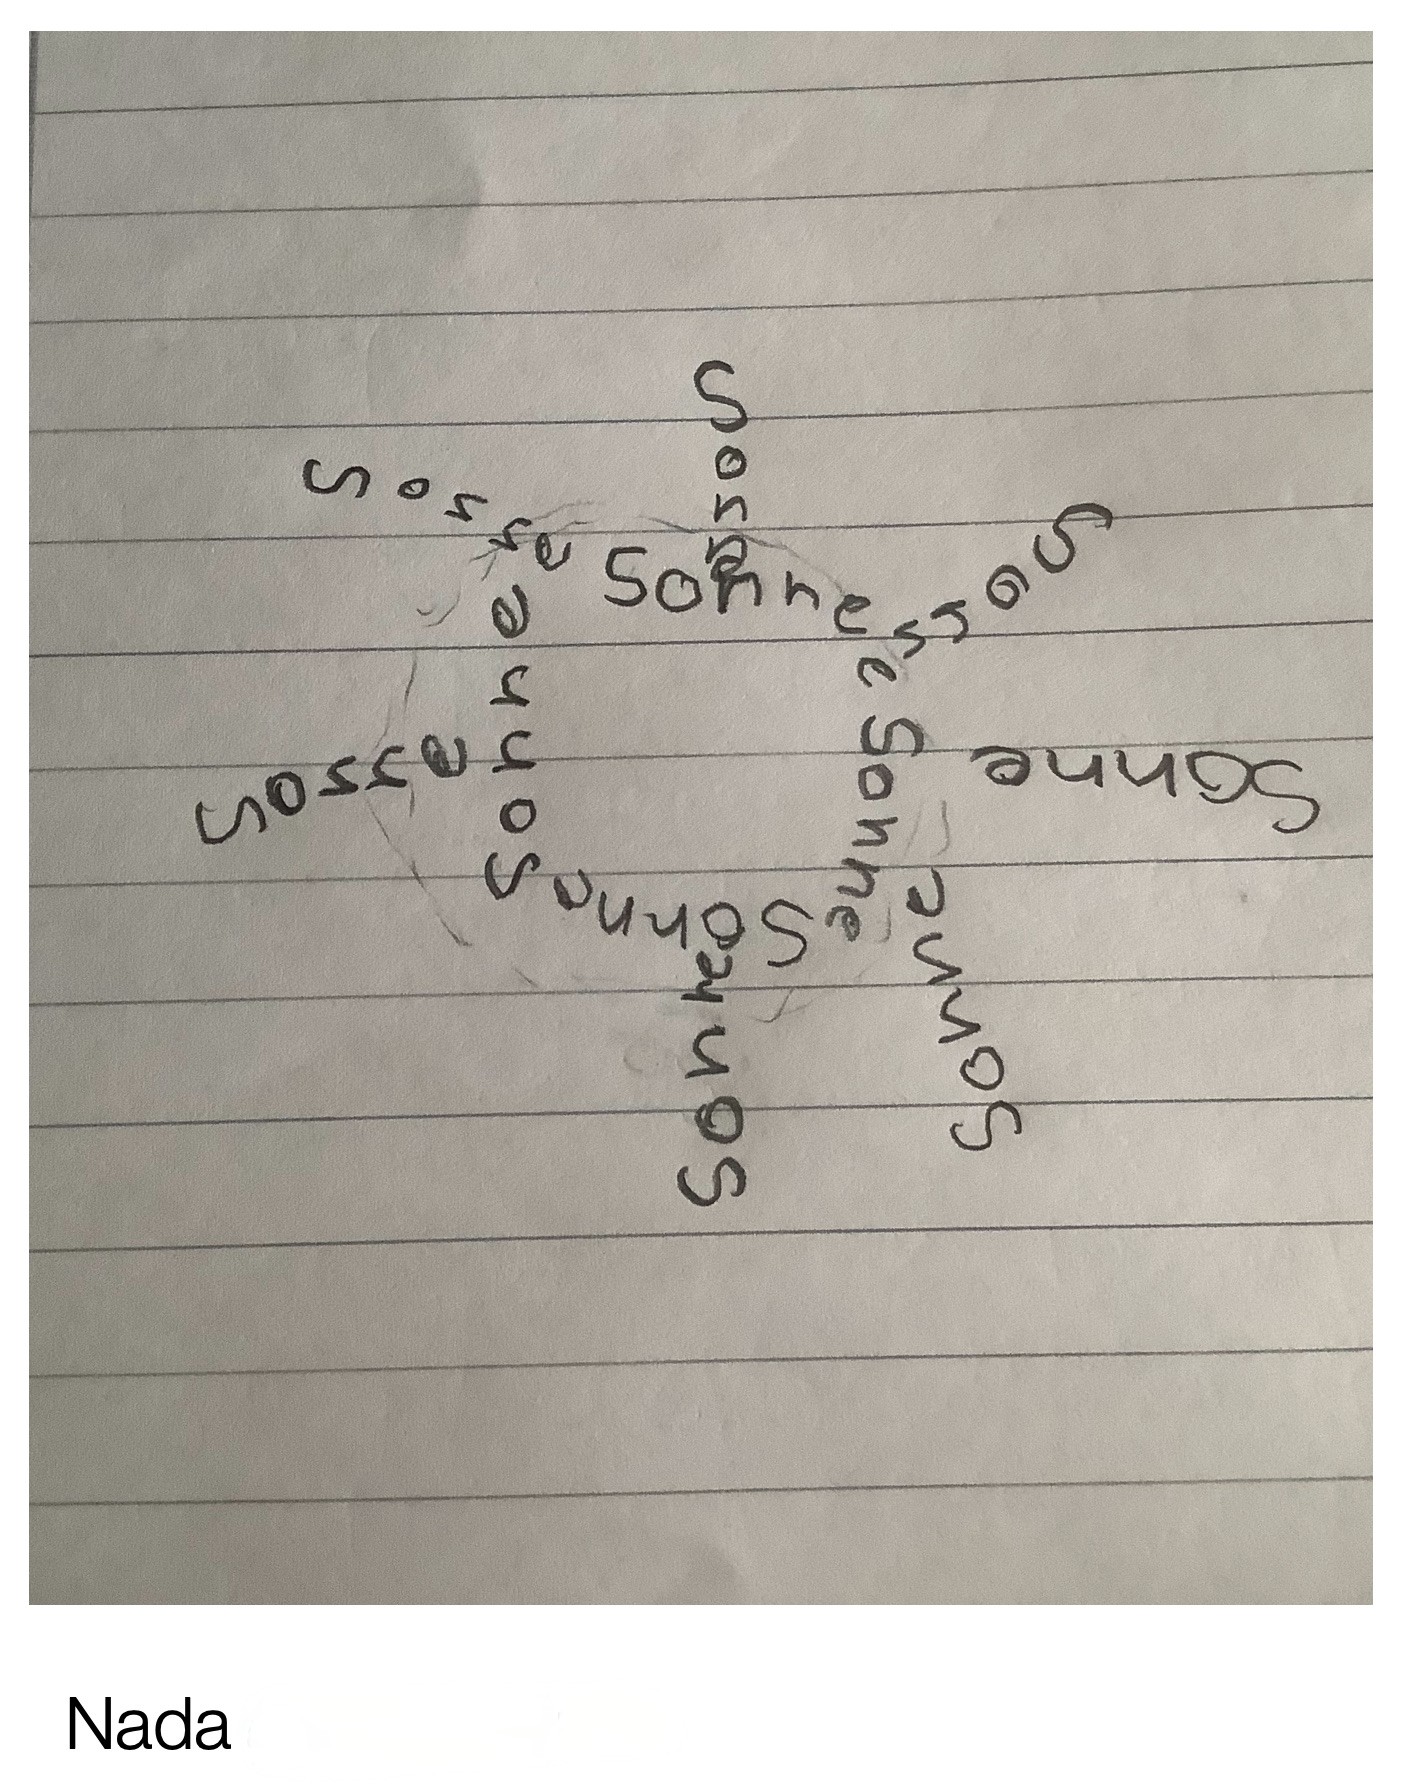 Sonne
Sonne
Sonne
Sonne
Sonne
Sonne
Sonne
Sonne
Sonne
Sonne
Sonne
Nada